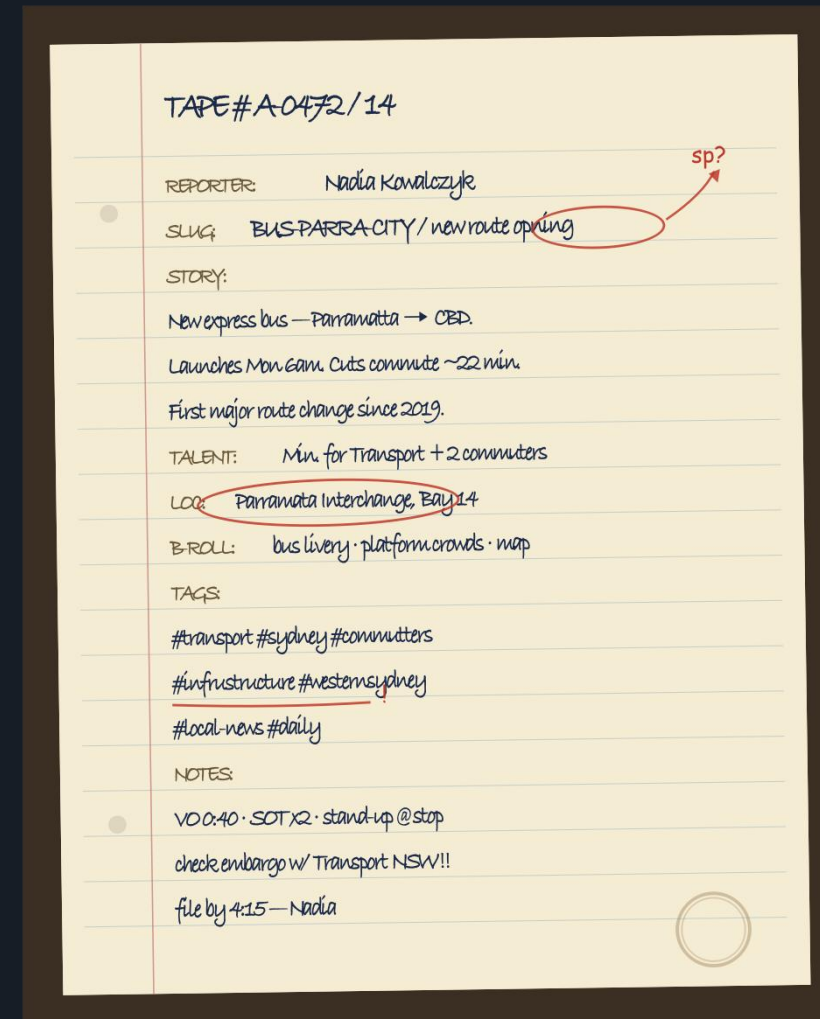 TAPE # A-0472 / 14
sp?
REPORTER: Nadia Kowalczyk
SLUG: BUS-PARRA-CITY / new route opning
STORY:
New express bus — Parramatta → CBD.
Launches Mon 6am. Cuts commute ~22 min.
First major route change since 2019.
TALENT: Min. for Transport + 2 commuters
LOC: Parramata Interchange, Bay 14
B-ROLL: bus livery · platform crowds · map
TAGS:
#transport #sydney #commutters
#infrustructure #westernsydney
!
#local-news #daily
NOTES:
VO 0:40 · SOT x2 · stand-up @ stop
check embargo w/ Transport NSW!!
file by 4:15 — Nadia